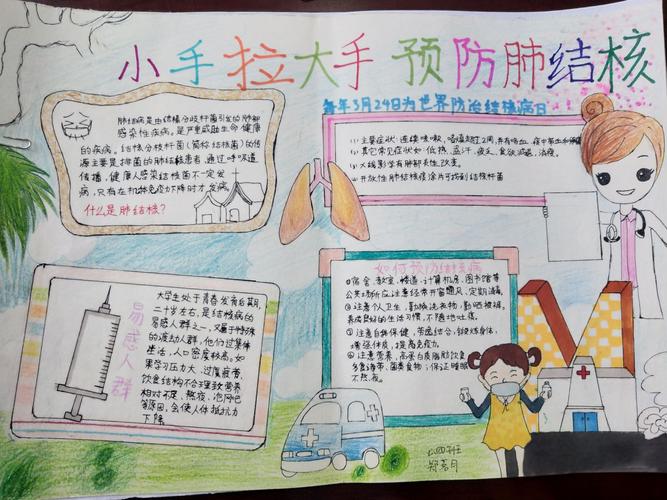 小手拉大手 预防肺结核
每年3月24日为世界防治结核病日
肺结病是由结核分歧杆菌引发的肺部
感染性疾病。是严重威胁生命健康
的疾病。结核分枝杆菌(简称结核菌)的传
源主要是排菌的肺结核患者,通过呼吸道
传播,健康人感染结核菌不一定发
病,只有在机体免疫力下降时才发病
什么是肺结核?
(1)主要症状:连续咳嗽、咯痰超过2周,并有咯血、痰中带血
(2)其它常见症状如:低热、盗汗、疲乏、食欲减退、消瘦。
(3)X线影像有肺部炎性改变。
(4)开放性肺结核痰涂片可找到结核杆菌
易感人群
大学生处于青春发育后期,
二十岁左右,是结核病的
易感人群之一,又属于特殊
的流动人群,他们过集体
生活,人口密度较高。如
果学习压力大、过度疲劳、
饮食结构不合理致营养
相对不足、熬夜、泡网吧
等原因,会使人体抵抗力
下降
如何预防结核病
①宿舍、教室、餐道、计算机房、图书馆等
公共场所应注意经常开窗通风、定期消毒。
②注意个人卫生,勤换洗衣物,勤晒被褥。
养成良好的生活习惯,不随地吐痰。
③注意自身保健,劳逸结合,锻炼身体,
增强体质,提高免疫力。
④注意营养,高蛋白质脂肪饮食,
多食海带、菌类食物;保证睡眠
不熬夜。
四班